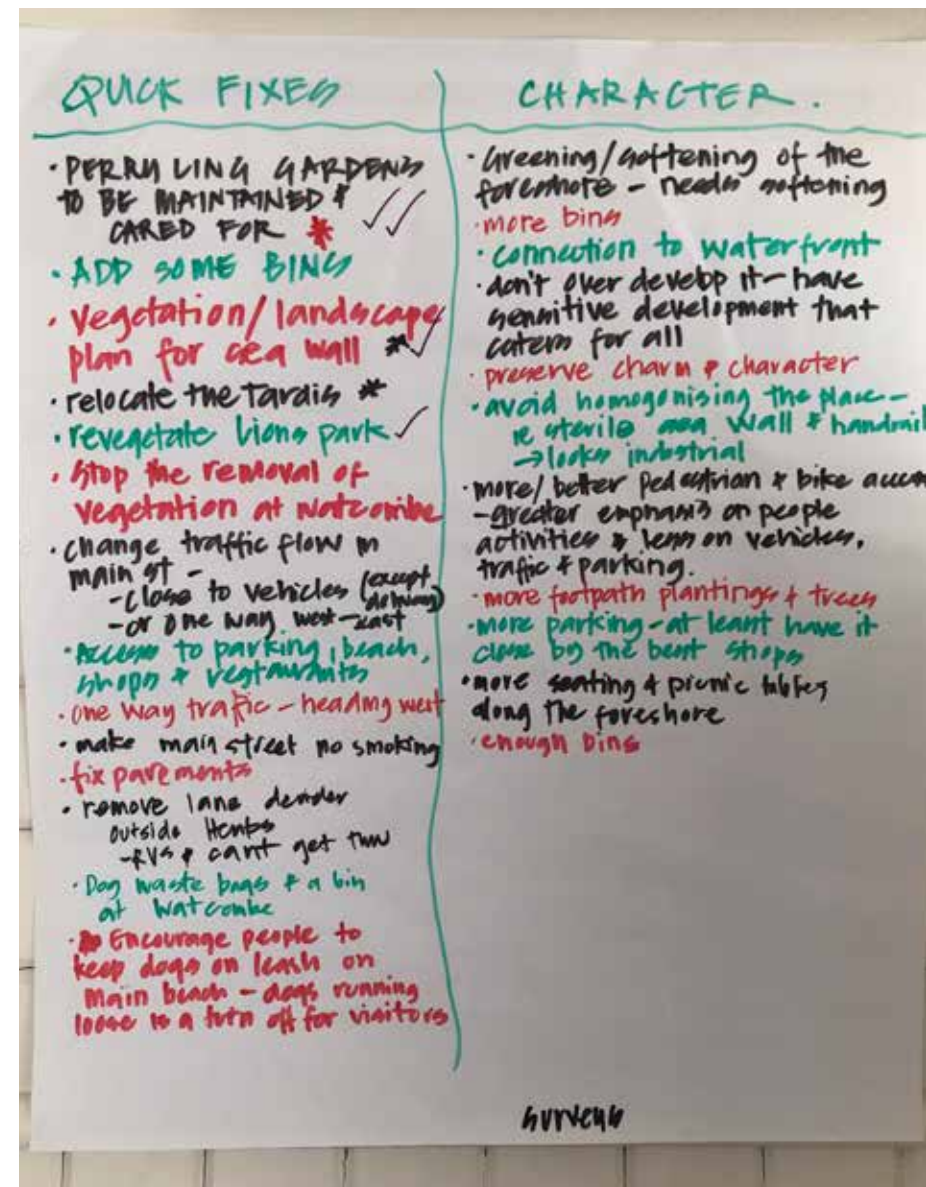 QUICK FIXES
• PERRY LING GARDENS
TO BE MAINTAINED &
CARED FOR * ✓✓
• ADD SOME BINS
• vegetation/landscape
plan for sea wall * ✓
• relocate the Tardis *
• revegetate Lions park ✓
• Stop the removal of
vegetation at Watcombe
• change traffic flow in
main st -
- close to vehicles (except
- or one way west-east
• Access to parking, beach,
shops & restaurants
• one way traffic - heading west
• make main street no smoking
• fix pavements
• remove lane
outside
- RVs & can't get
• Dog waste bags & a bin
at Watcombe
• Encourage people to
keep dogs on leash on
main beach - dogs running
loose is a turn off for visitors
CHARACTER.
• Greening/softening of the
foreshore - needs softening
• more bins
• connection to waterfront
• don't over develop it - have
sensitive development that
caters for all
• preserve charm & character
• avoid homogonising the place -
ie sterile sea wall & handrail
→ looks industrial
• more/better pedestrian & bike
- greater emphasis on people
activities & less on vehicles,
traffic & parking.
• more footpath plantings & trees
• more parking - at least have it
close by the best shops
• more seating & picnic tables
along the foreshore
• enough bins
surveys